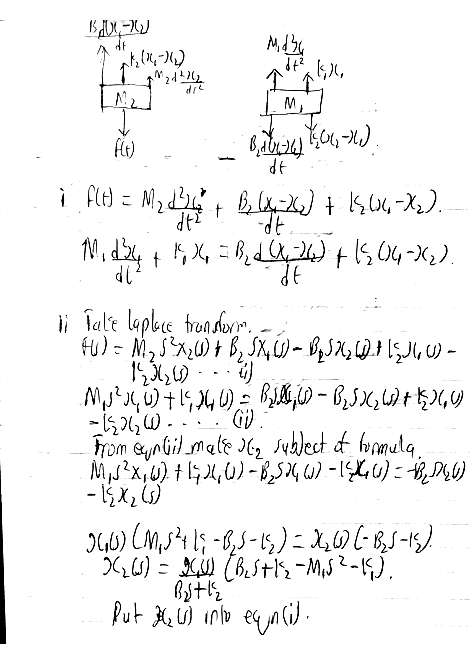 B₂d(x₁-x₂)
dt
K₂(x₁-x₂)
M₂d²x₂
dt²
M₂
f(t)
M₁d²x₁
dt²
K₁x₁
M₁
B₂d(x₁-x₂)
dt
K₂(x₁-x₂)
i f(t) = M₂d²x₂/dt² + B₂(x₁-x₂)/dt + K₂(x₁-x₂).
M₁d²x₁/dt² + K₁x₁ = B₂d(x₁-x₂)/dt + K₂(x₁-x₂)
ii Take laplace transform.
f(s) = M₂S²X₂(s) + B₂SX₁(s) - B₂Sx₂(s) + K₂x₁(s) -
K₂x₂(s) ---- (i)
M₁S²x₁(s) + K₁x₁(s) = B₂Sx₁(s) - B₂Sx₂(s) + K₂x₁(s)
-K₂x₂(s) ---- (ii).
From eqn(ii) make x₂ subject of formula.
M₁S²x₁(s) + K₁x₁(s) - B₂Sx₁(s) - K₂x₁(s) = -B₂Sx₂(s)
-K₂x₂(s)
x₁(s)(M₁S² + K₁ - B₂S - K₂) = x₂(s)(-B₂S - K₂).
x₂(s) = x₁(s)/B₂S+K₂ (B₂S + K₂ - M₁S² - K₁).
Put x₂(s) into eqn(i).